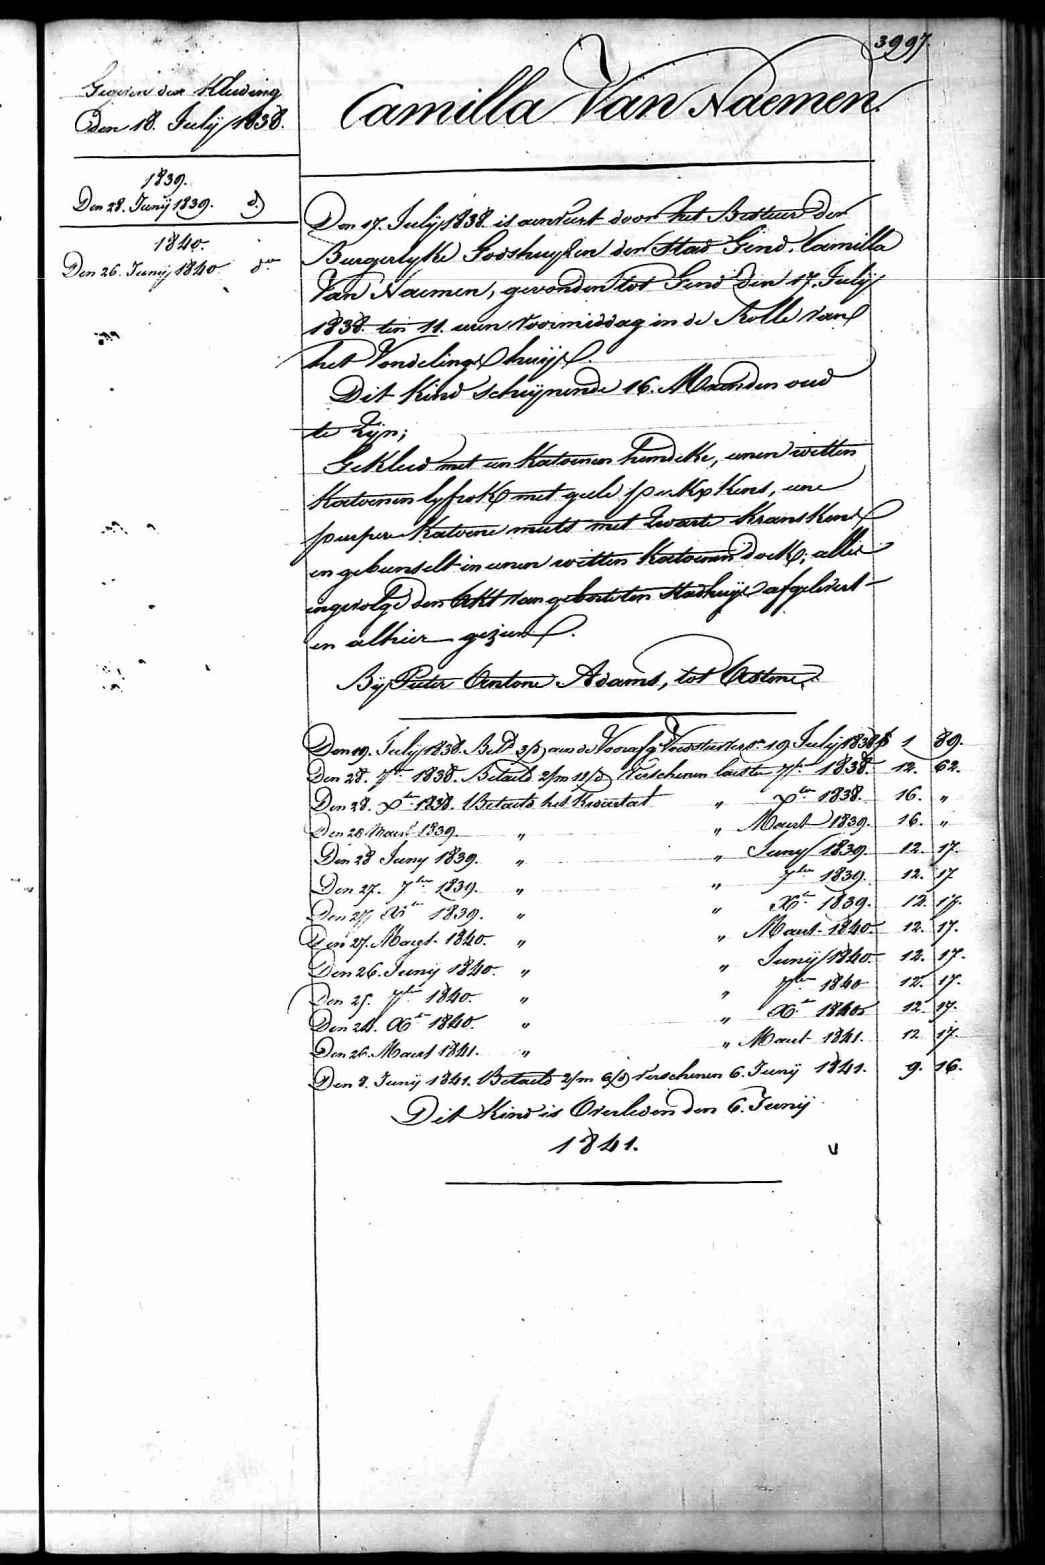 3997.
Gegeven der Kleeding
Den 18. Julij 1838.
1839.
Den 28. Junij 1839. d.o
1840.
Den 26. Junij 1840 d.o
Camilla Van Naemen.
Den 17. Julij 1838. is aenveirt door het Bestuer der
Burgerlyke Godshuyzen der Stad Gend. Camilla
Van Naemen, gevonden tot Gend den 17. Julij
1838. ten 11. uren voormiddag in de Rolle van
het Vondelings huijs.
Dit kind schijnende 16. Maenden oud
te zijn;
Gekleed met een katoenen hemdeke, eenen witten
katoenen lyfrok met geele perkxkens, eene
purpere katoene muts met zwarte kranskens,
en gebunselt in eenen witten katoenen doek; alles
ingevolge den Akt van geboorte ten Stadhuijse afgelevert
en alhier gezien.
Bij Pieter Antone Adams, tot Astene.
Den 19. Julij 1838. Bet.d 3/d aen de 19 Julij 1838 f 1 89.
Den 28. 7ber 1838. Betaeld 2/m 12/d Verschenen laesten 7ber 1838. 12. 62.
Den 28. Xber 1838. Betaeld het Kwartael " Xber 1838. 16. "
Den 28 Maert 1839. " " Maert 1839. 16. "
Den 28 Juny 1839. " " Juny 1839. 12. 17.
Den 27. 7ber 1839. " " 7ber 1839. 12. 17
Den 27 Xber 1839. " " Xber 1839. 12. 17.
Den 27. Maert 1840. " " Maert 1840. 12. 17.
Den 26. Junij 1840. " " Junij 1840. 12. 17.
Den 25. 7ber 1840. " " 7ber 1840 12. 17.
Den 24. Xber 1840. " " Xber 1840. 12. 17.
Den 26. Maert 1841. " " Maert 1841. 12 17.
Den 8. Junij 1841. Betaeld 2/m 6/d Verschenen 6. Junij 1841. 9. 16.
Dit Kind is Overleden den 6. Junij
1841.